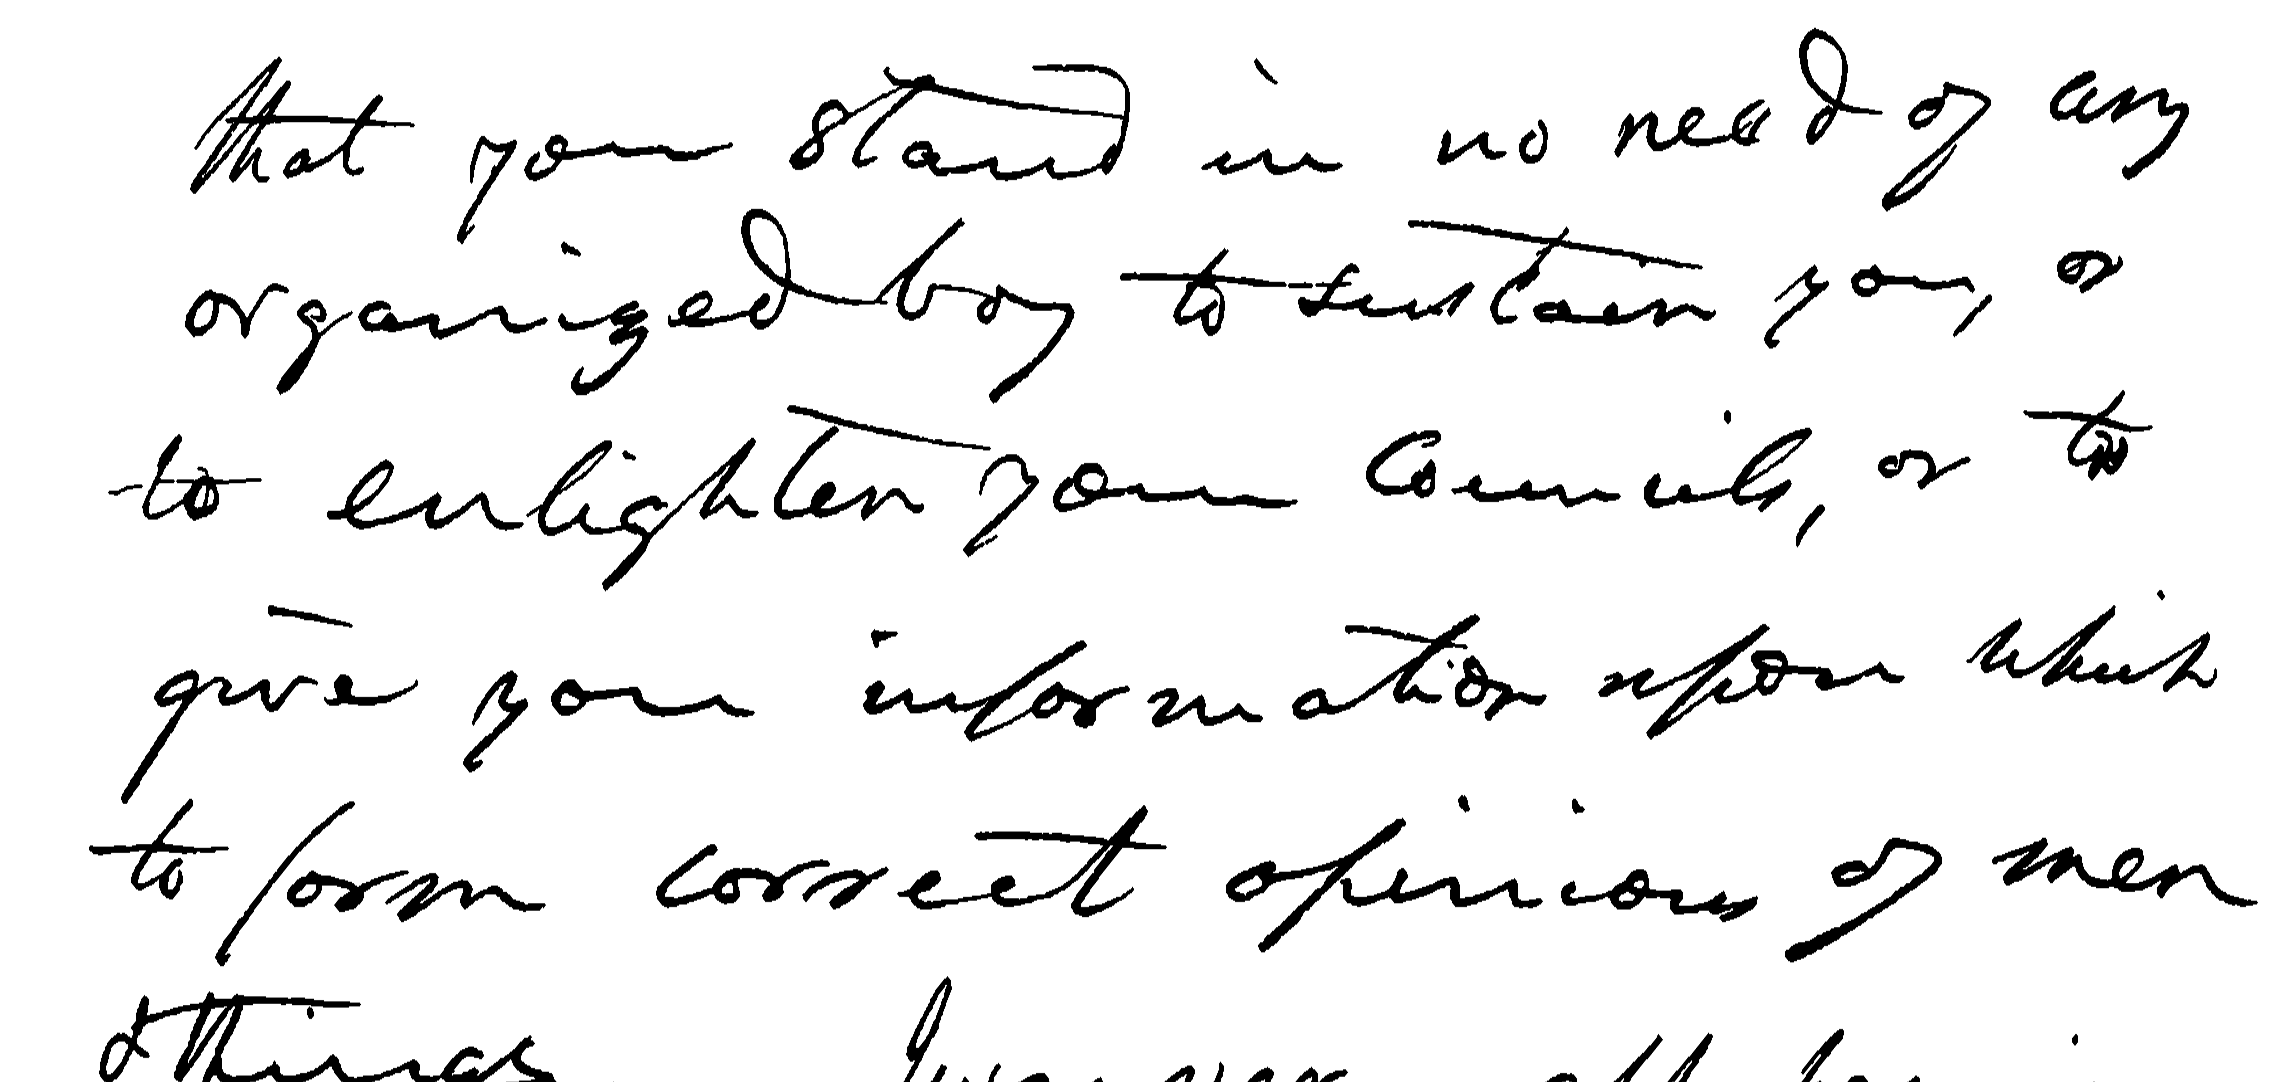 that you stand in no need of any
organized boy to sustain you, or
to enlighten your Councils, or to
give you information upon which
to form correct opinions of men
& things